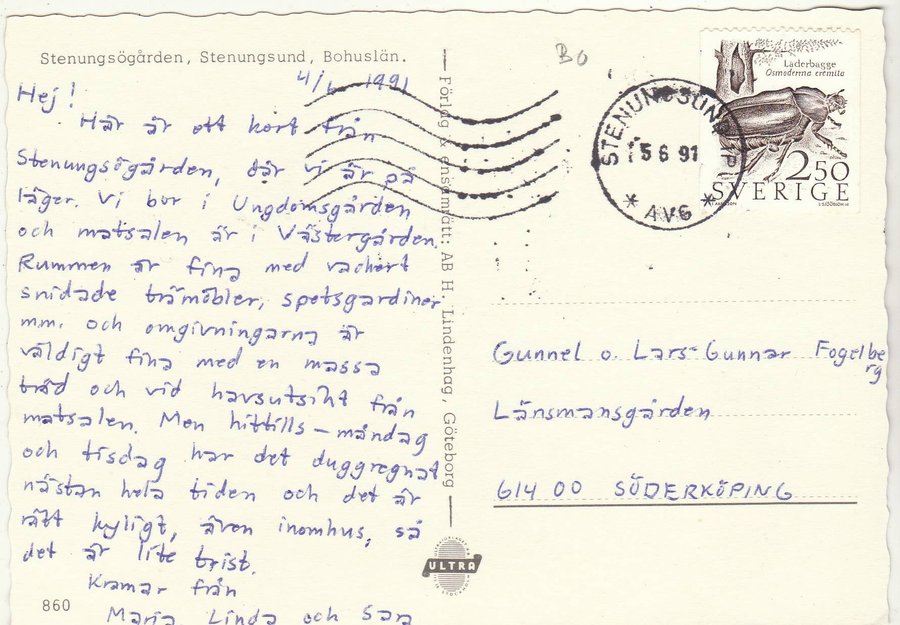 Stenungsögården, Stenungsund, Bohuslän.
4/6 1991
Hej!
Här är ett kort från
Stenungsögården, där vi är på
läger. Vi bor i Ungdomsgården
och matsalen är i Västergården.
Rummen är fina med vackert
snidade trämöbler, spetsgardiner
mm. och omgivningarna är
väldigt fina med en massa
träd och vid havsutsikt från
matsalen. Men hittills – måndag
och tisdag har det duggregnat
nästan hela tiden och det är
rätt kyligt, även inomhus, så
det är lite trist.
Kramar från
Maria Linda och Sara
860
Förlag x ensamrätt: AB H. Lindenhag, Göteborg
ULTRA
BO
STENUNGSUND
5 6 91
* AVG *
Läderbagge
Osmoderma eremita
2.50
SVERIGE
Gunnel o. Lars-Gunnar Fogelbe
rg
Länsmansgården
614 00 SÖDERKÖPING